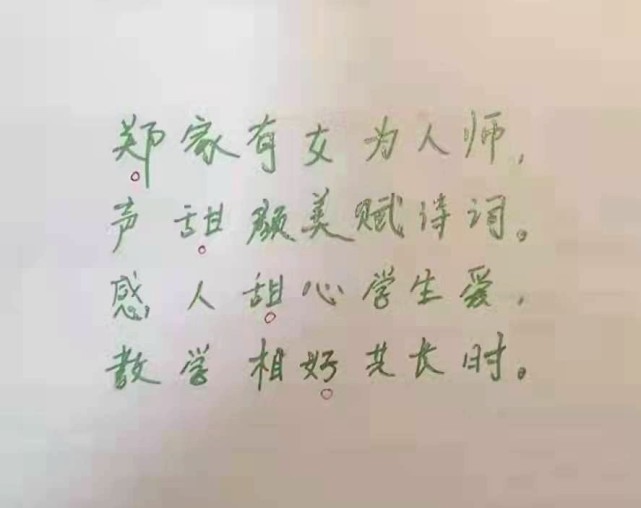 郑家有女为人师,
声甜颜美赋诗词。
感人甜心学生爱,
教学相好共长时。